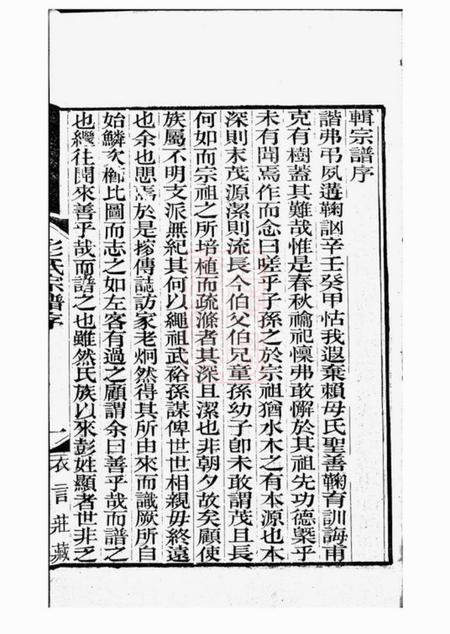 輯宗譜序
譜弗弔夙遘鞠訩辛壬癸甲怙我遐棄賴母氏聖善鞠育訓誨甫
克有樹蓋其難哉惟是春秋禴祀懷弗敢懈於其祖先功德槩乎
未有聞焉作而念曰嗟乎子孫之於宗祖猶水木之有本源也本
深則末茂源潔則流長今伯父伯兄童孫幼子卽未敢謂茂且長
何如而宗祖之所培植而疏滌者其深且潔也非朝夕故矣顧使
族屬不明支派無紀其何以繩祖武裕孫謀俾世世相親毋終遠
也余也思焉於是搜傳誌訪家老炯然得其所由來而識厥所自
始鱗次櫛比圖而志之如左客有過之顧謂余曰善乎哉而譜之
也繼往開來善乎哉而譜之也雖然氏族以來彭姓顯者世非乏
彭氏宗譜序
一
衣言莊藏